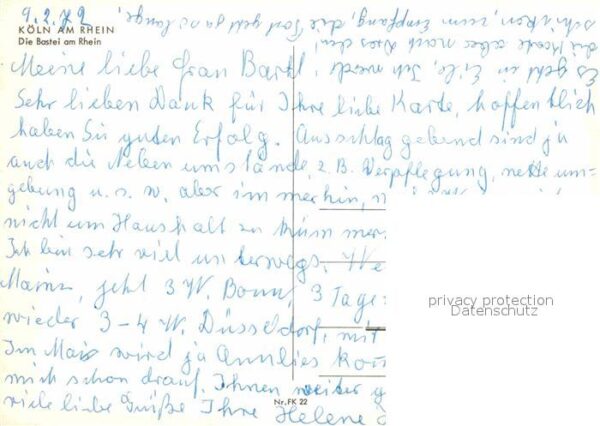 9.2.72
KÖLN AM RHEIN
Die Bastei am Rhein
Meine liebe Frau Bartl!
Sehr lieben Dank für Ihre liebe Karte, hoffentlich
haben Sie guten Erfolg. Ausschlag gebend sind ja
auch die Neben umstände, z.B. Verpflegung, nette um-
gebung u.s.w. aber im merhin,
nicht um Haushalt zu küm mer
Ich bin sehr viel un terwegs. We
Mainz, jetzt 3 W. Bonn, 3 Tage
wieder 3-4 W. Düsseldorf, mit
Im Mai wird ja Annlies kom
mich schon drauf. Ihnen weiter g
viele liebe Grüße Ihre Helene
Es geht in Eile, Ich werde
die Karte aber nach
schicken, zum Empfang, die Post geht ja so lange.
privacy protection
Datenschutz
Nr. FK 22